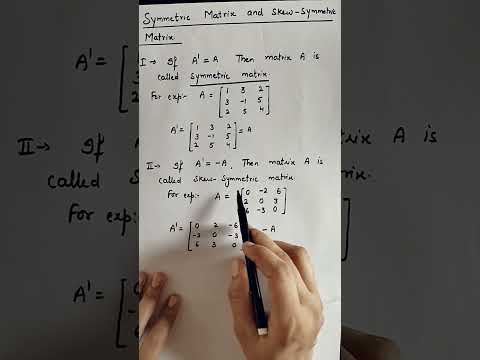 Symmetric Matrix and Skew-Symmetric
Matrix
I → If A' = A Then matrix A is
called Symmetric matrix.
For exp:- A = [ 1 3 2
3 -1 5
2 5 4 ]
A' = [ 1 3 2
3 -1 5
2 5 4 ] = A
II → If A' = -A, Then matrix A is
called Skew-Symmetric matrix
For exp:- A = [ 0 -2 6
2 0 3
6 -3 0 ]
A' = [ 0 2 -6
-2 0 -3
6 3 0 - A